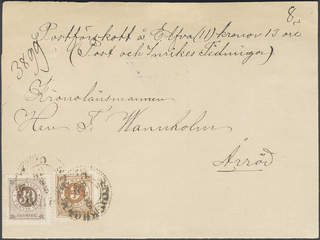 8.
Postförskott à Elfva (11) kronor 15 öre
(Post och Inrikes Tidningar)
3899
Kronolänsmannen
Herr F. Wannholm
Arröd
30